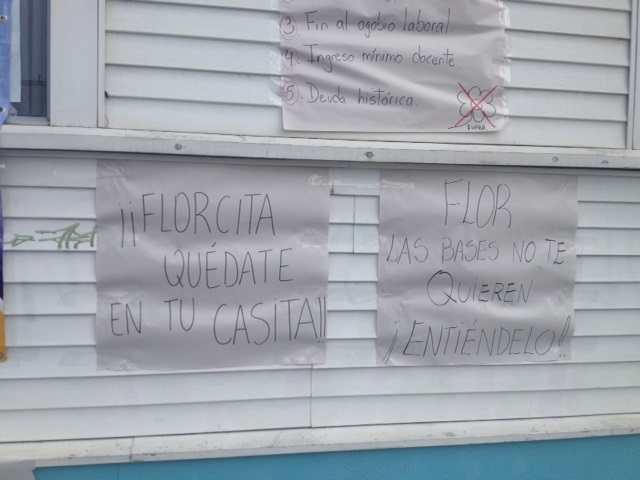 3. Fin al agobio laboral.
4. Ingreso mínimo docente
5. Deuda histórica.
FUERA
¡¡FLORCITA
QUÉDATE
EN TU CASITA!!
FLOR
LAS BASES NO TE
QUIEREN
¡ENTIÉNDELO!!